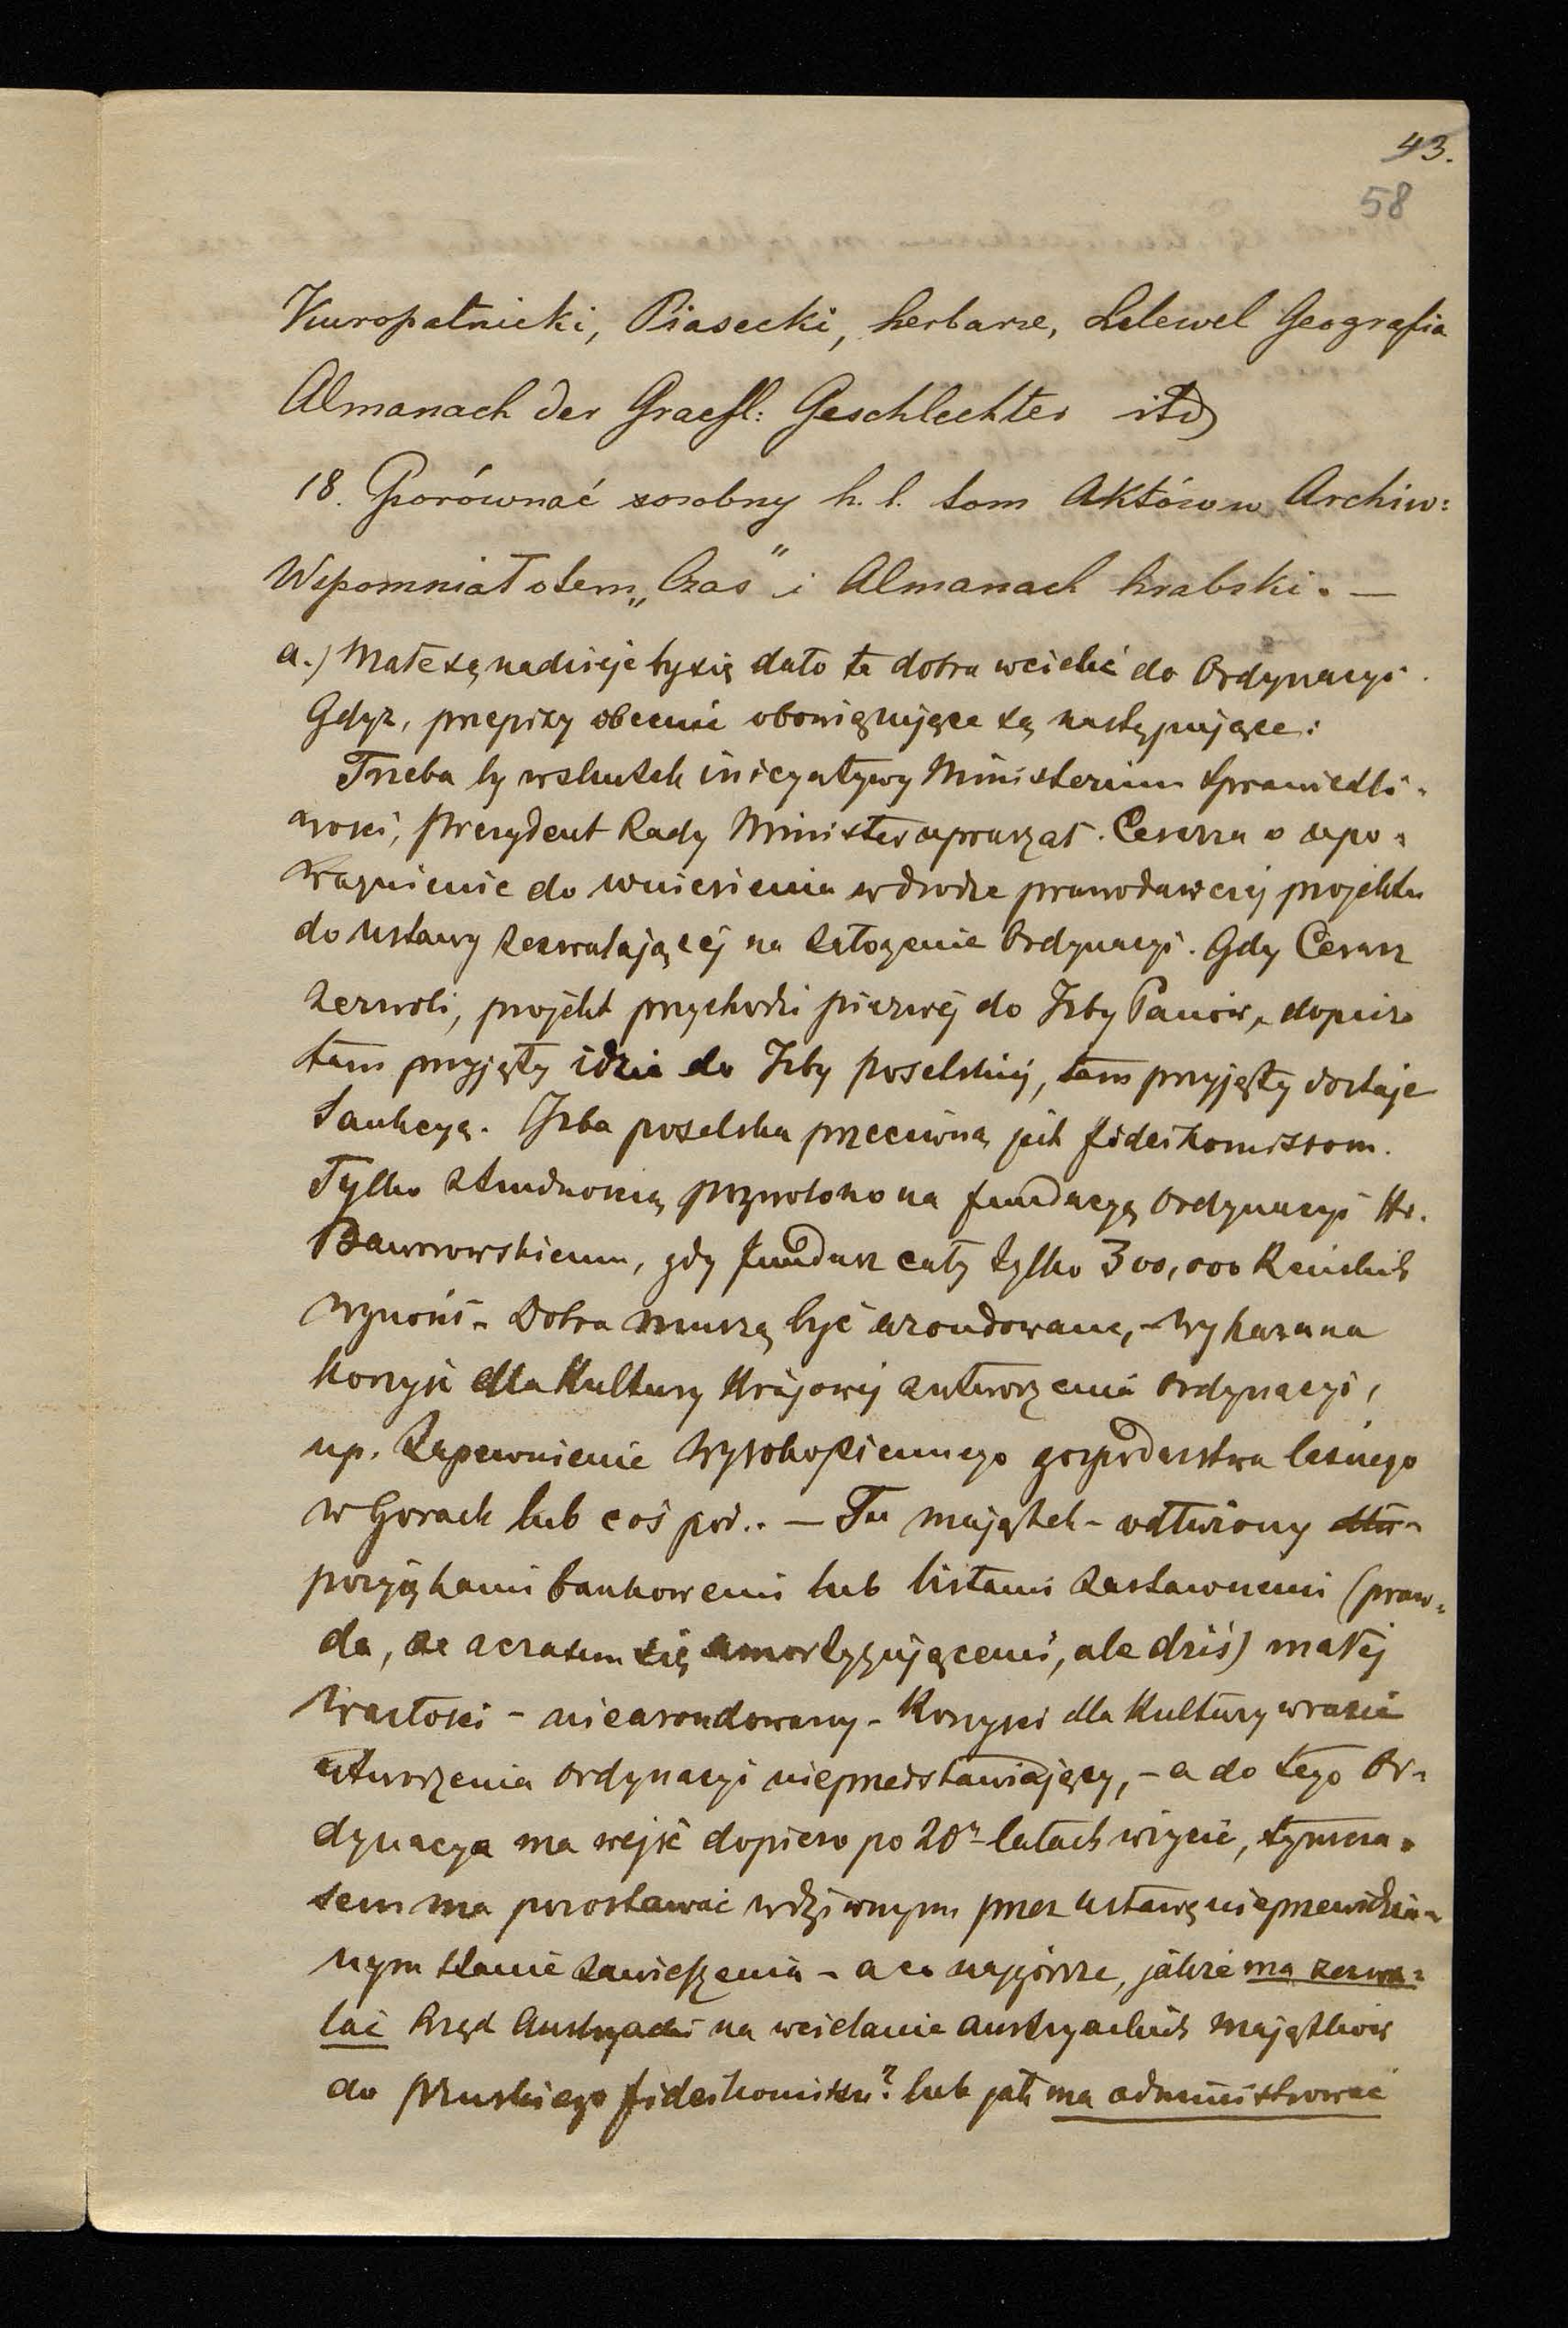 43.
58
Kuropatnicki, Piasecki, herbarze, Lelewel Geografia
Almanach der Graefl: Geschlechter itd
18. Porównać osobny h. l. tom Aktów w Archiw:
Wspomniał o tem „Czas" i Almanach hrabski. —
a.) Małe są nadzieje by się dało te dobra wcielić do Ordynacyi.
Gdyż, przepisy obecnie obowiązujące są następujące:
Trzeba by wskutek inicyatywy Ministerium Sprawiedli-
wości, prezydent Rady Ministrów upraszał Cesarza o upo-
ważnienie do wniesienia w drodze prawodawczej projektu
do ustawy zezwalającej na założenie Ordynacyi. Gdy Cesarz
zezwoli, projekt przychodzi pierwej do Izby Panów, dopiero
tam przyjęty idzie do Izby poselskiej, tam przyjęty dostaje
Sankcyą. Izba poselska przeciwną jest fideikomissom.
Tylko z trudnością pozwolono na fundacyą Ordynacyi Hr.
Baworowskiemu, gdy fundusz cały tylko 300,000 Reńskich
wynosi. Dobra muszą być arondowane, – wykazana
korzyść dla Kultury Krajowej z utworzenia ordynacyi,
np. Zapewnienie wysokopiennego gospodarstwa leśnego
w Gorach lub coś pod.. — Tu majątek – odłużony
pożyczkami bankowemi lub listami zastawnemi (praw-
da, że z czasem się amortyzującemi, ale dziś) małej
wartości – niearondowany – Korzyści dla Kultury w razie
utworzenia ordynacyi nieprzedstawiający, – a do tego Or-
dynacya ma wejść dopiero po 20 latach w życie, tymcza-
sem ma pozostawać w dziwnym przez ustawę nieprzewidzia-
nym stanie zawieszenia – a co najgorsze, jakże ma zezwa-
lać Rząd Austryacki na wcielanie austryackich majątków
do pruskiego fideikomisu? lub jak ma administrować